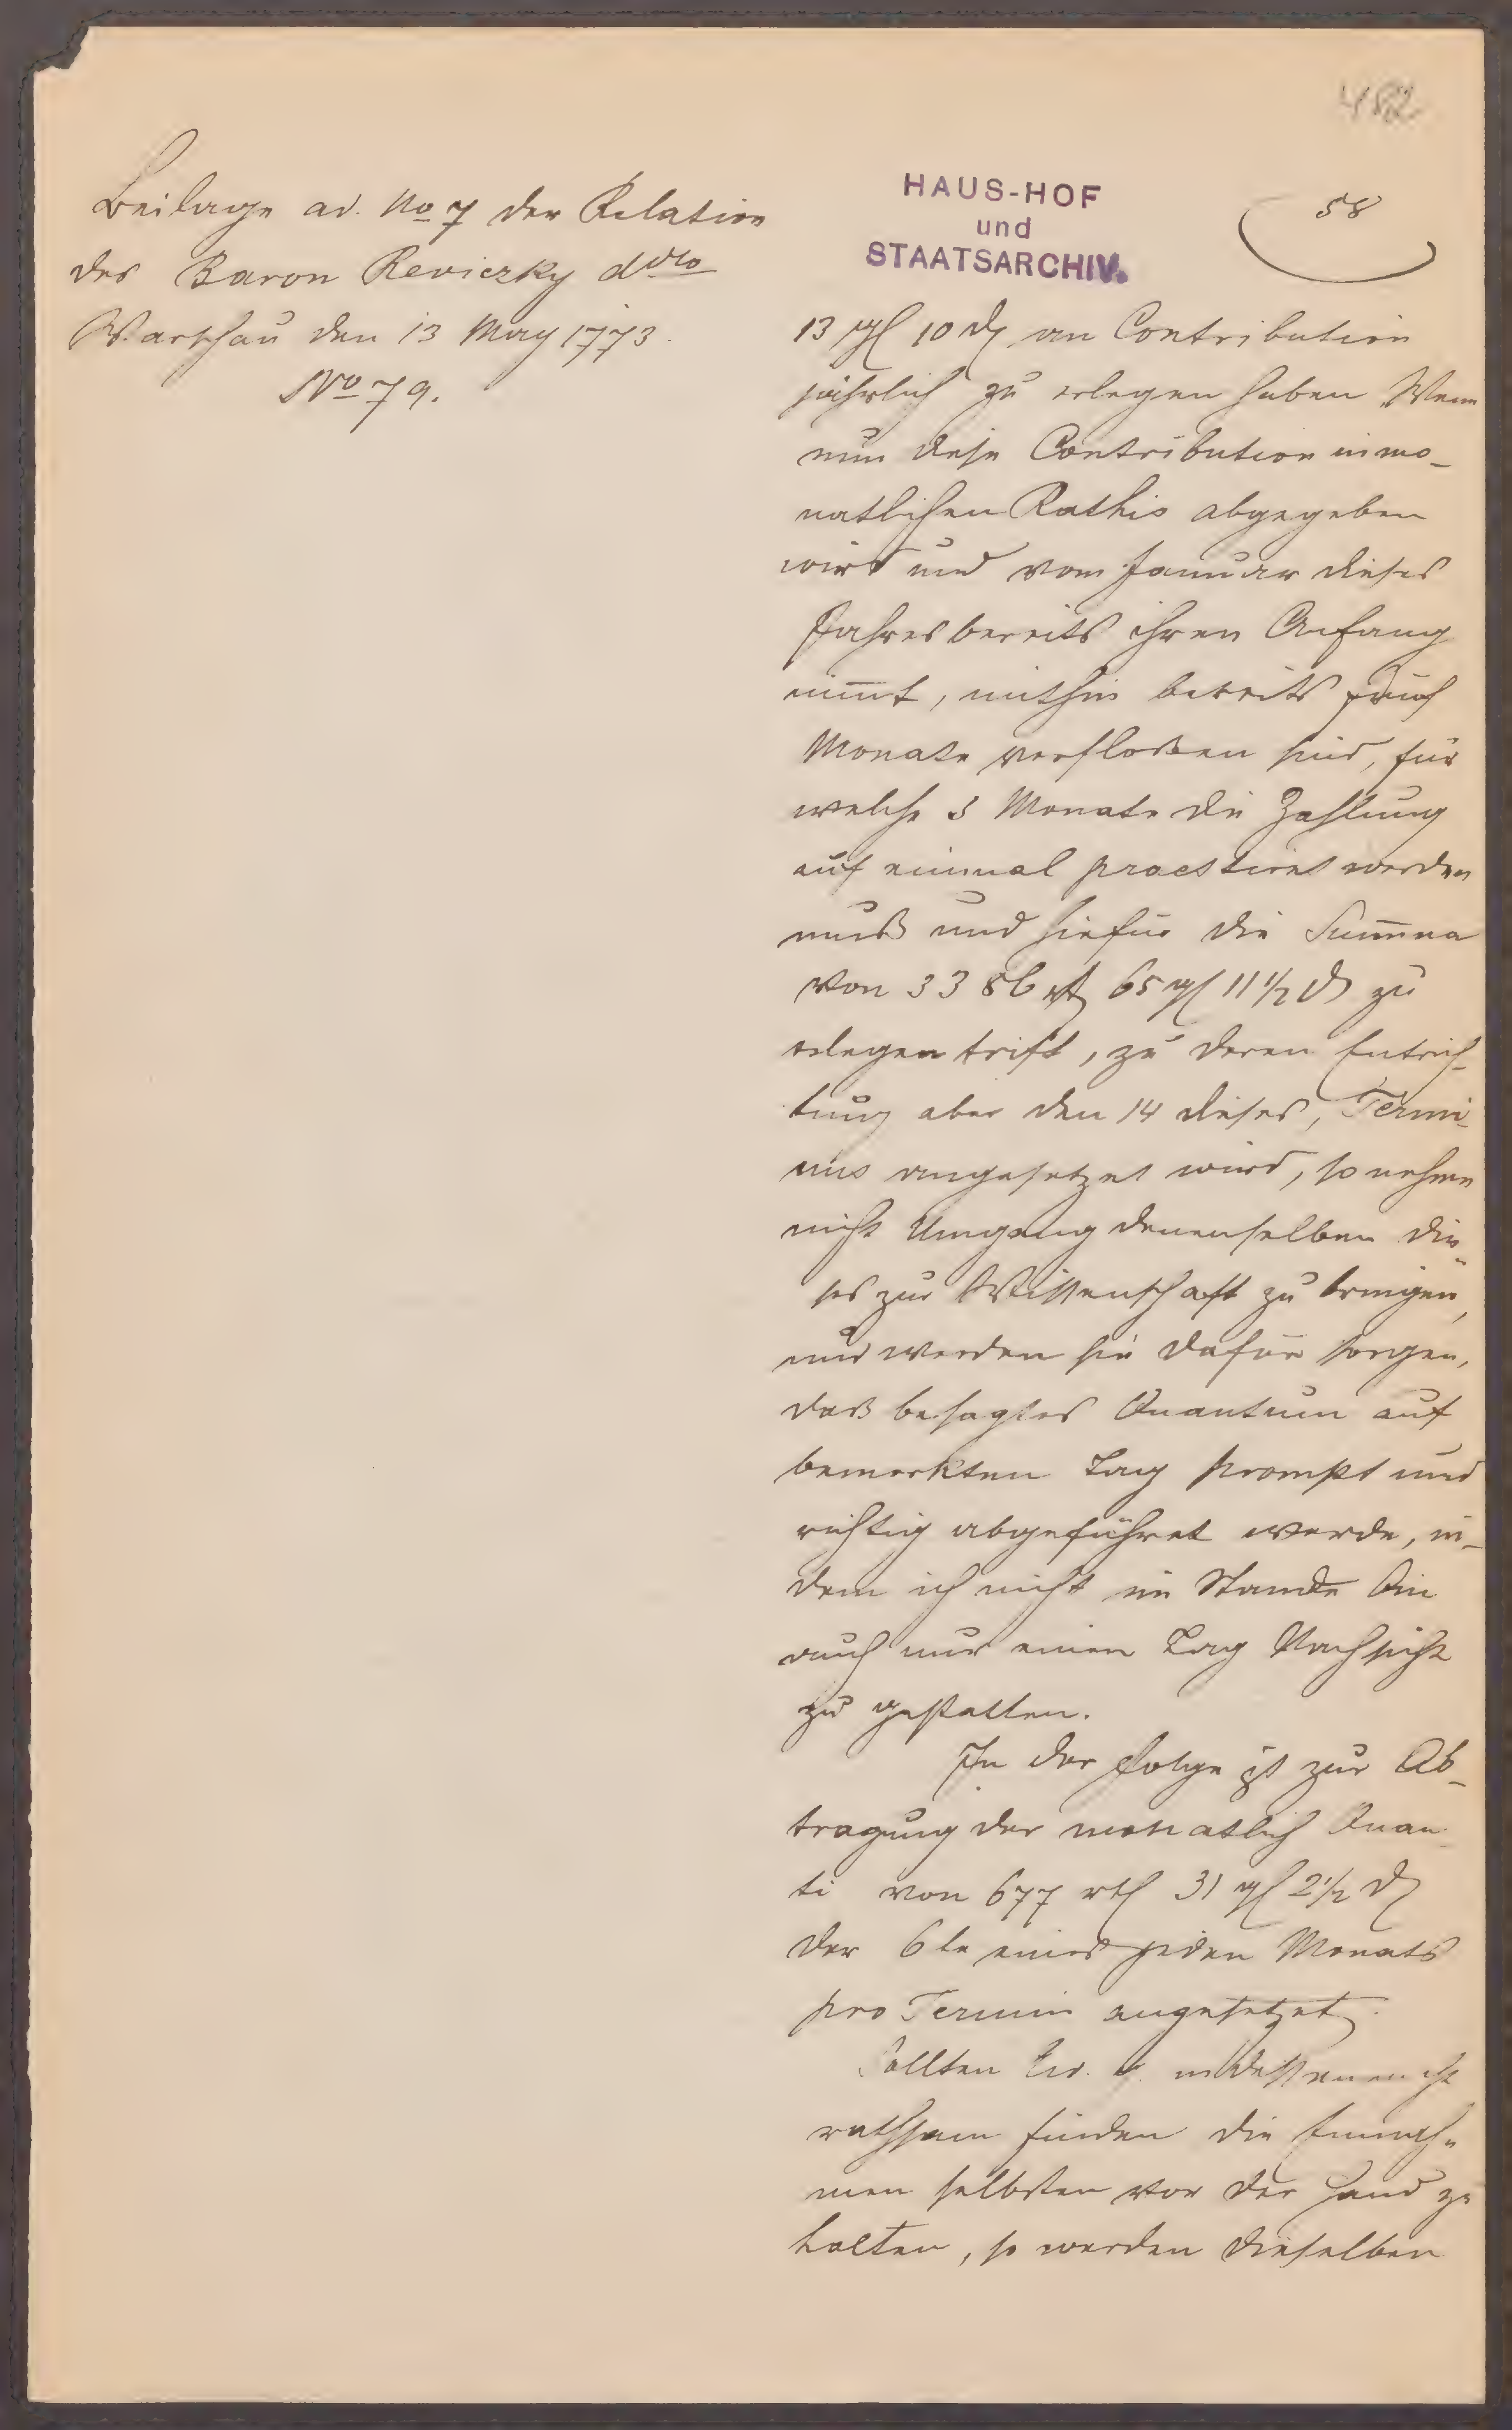 482
Beilage ad. No 7 der Relation
des Baron Reviczky ddto
Warschau den 13 May 1773.
No 79.
HAUS-HOF
und
STAATSARCHIV.
58
13 gl 10 d an Contribution
jährlich zu erlegen haben Wenn
nun diese Contribution in mo-
natlichen Rathis abgegeben
wird und vom Januar dieses
Jahres bereits ihren Anfang
nimt, mithin bereits fünf
Monate verfloßen sind, für
welche 5 Monate die Zahlung
auf einmal praestiret werden
muß und hiefür die Summa
von 3386 rt 65 gl 11 1/2 d zu
erlegen trift, zu deren Entrich-
tung aber den 14 dieses, Termi-
nus angesetzet wird, so nehme
nicht Umgang denenselben die-
ses zur Wissenschaft zu bringen,
und werden sie dafür sorgen,
daß besagtes Quantum auf
bemerkten Tag prompt und
richtig abgeführet werde, in-
dem ich nicht im Stande bin
auch nur einen Tag Nachsicht
zu gestatten.
In der Folge ist zur Ab-
tragung der monatlich Quan-
ti von 677 rtl 31 gl 2 1/2 d
der 6te eines jeden Monats
pro Termin angesetzet.
Sollten Ew. indessen nicht
rathsam finden die Einnah-
men selbsten vor der Hand zu
halten, so werden dieselben